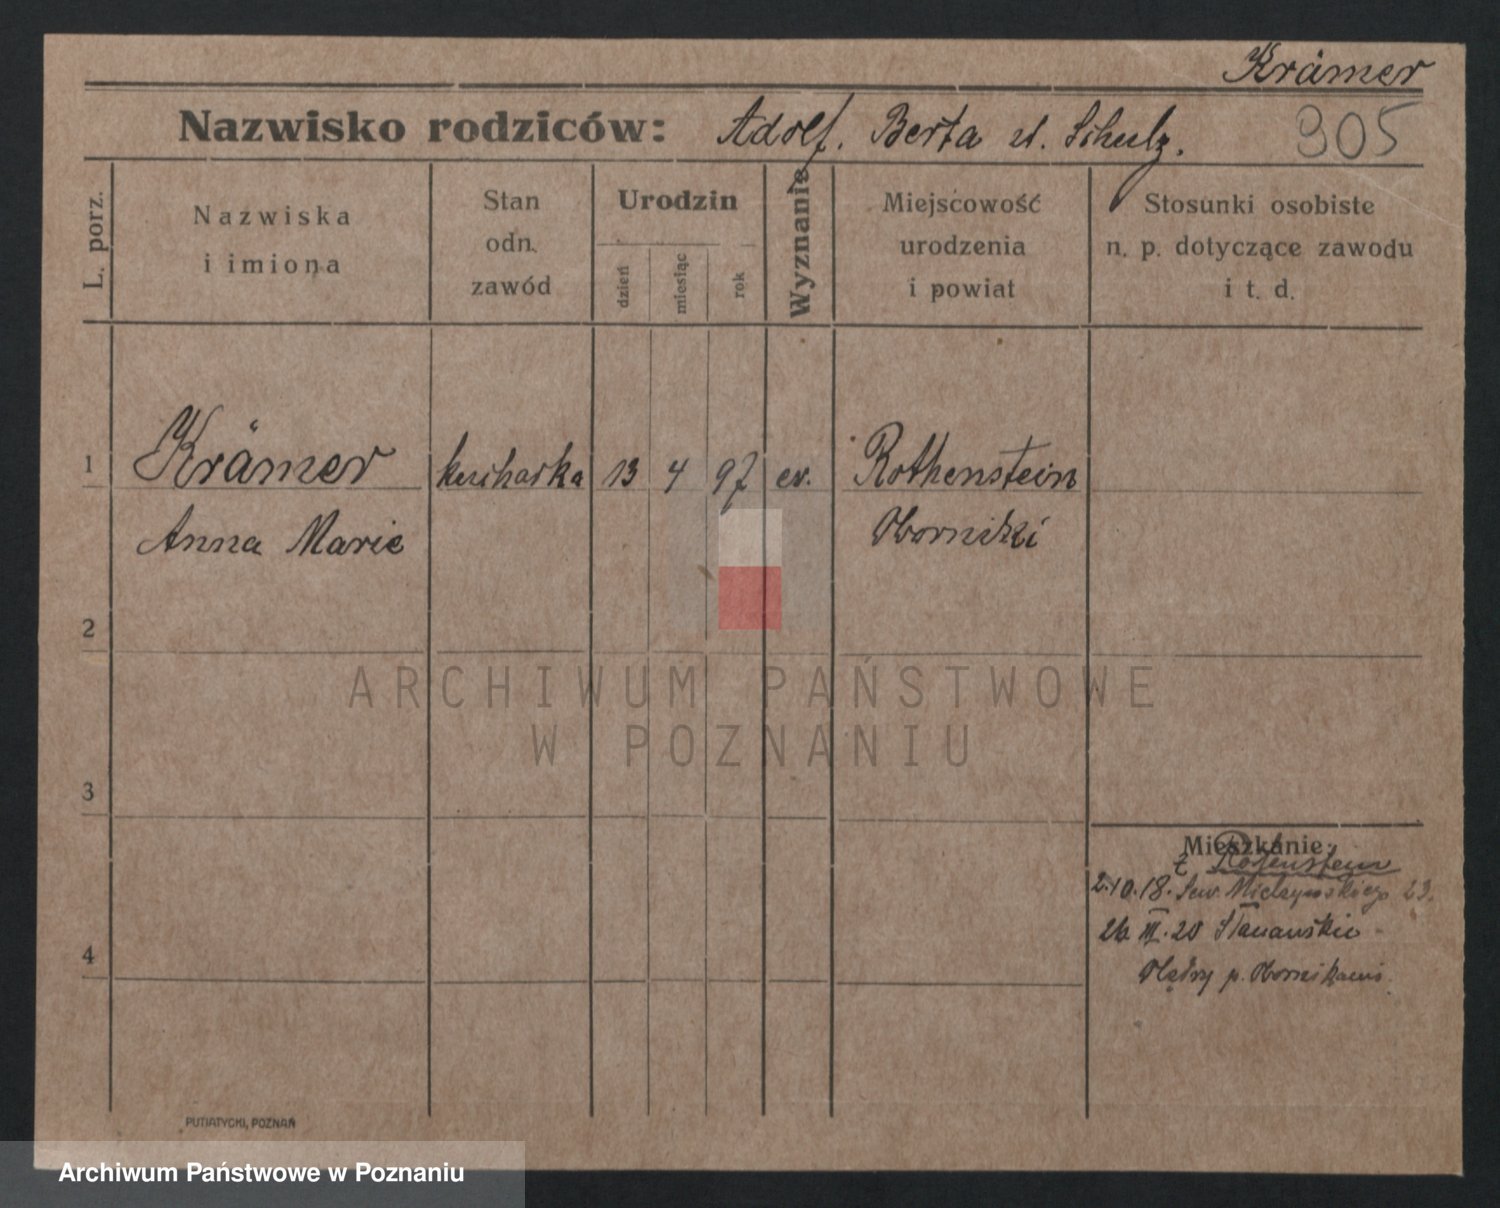 Krämer
Nazwisko rodziców: Adolf. Berta Schulz.
905
L. porz.
Nazwiska
i imiona
Stan
odn.
zawód
Urodzin
dzień
miesiąc
rok
Wyznanie
Miejscowość
urodzenia
i powiat
Stosunki osobiste
n. p. dotyczące zawodu
i t. d.
1 Krämer kucharka 13 4 97 ev. Rothenstein
Anna Marie Oborniki
2
3
Mieszkanie:
z Rothenstein
2.10.18. Sew. Mielzynskiego 23.
26 III. 28
4
p. Obornikami.
PUTIATYCKI, POZNAŃ
ARCHIWUM PAŃSTWOWE
W POZNANIU
Archiwum Państwowe w Poznaniu